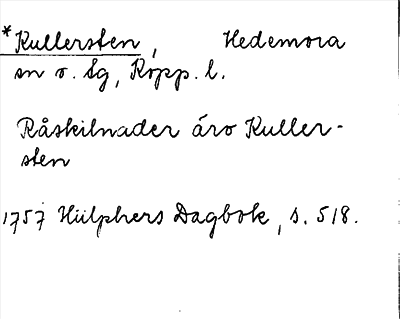 *Kullersten, Hedemora
sn o. Sg, Kopp. l.
Råskilnader äro Kuller-
sten
1757 Hülphers Dagbok, s. 518.